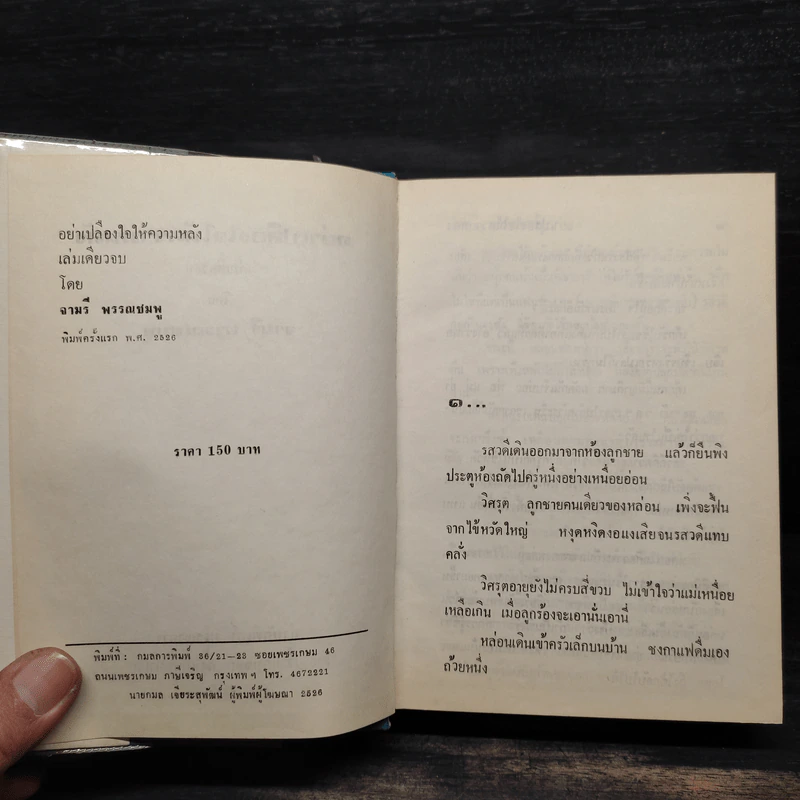 อย่าเปลืองใจให้ความหลัง
เล่มเดียวจบ
โดย
จามรี พรรณชมพู
พิมพ์ครั้งแรก พ.ศ. 2526
ราคา 150 บาท
พิมพ์ที่ : กมลการพิมพ์ 36/21-23 ซอยเพชรเกษม 46
ถนนเพชรเกษม ภาษีเจริญ กรุงเทพ ฯ โทร. 4672221
นายกมล เจียระสุพัฒน์ ผู้พิมพ์ผู้โฆษณา 2526
๑...
รสวดีเดินออกมาจากห้องลูกชาย แล้วก็ยืนพิง
ประตูห้องถัดไปครู่หนึ่งอย่างเหนื่อยอ่อน
วิศรุต ลูกชายคนเดียวของหล่อน เพิ่งจะฟื้น
จากไข้หวัดใหญ่ หงุดหงิดงอแงเสียจนรสวดีแทบ
คลั่ง
วิศรุตอายุยังไม่ครบสี่ขวบ ไม่เข้าใจว่าแม่เหนื่อย
เหลือเกิน เมื่อลูกร้องจะเอานั่นเอานี่
หล่อนเดินเข้าครัวเล็กบนบ้าน ชงกาแฟดื่มเอง
ถ้วยหนึ่ง